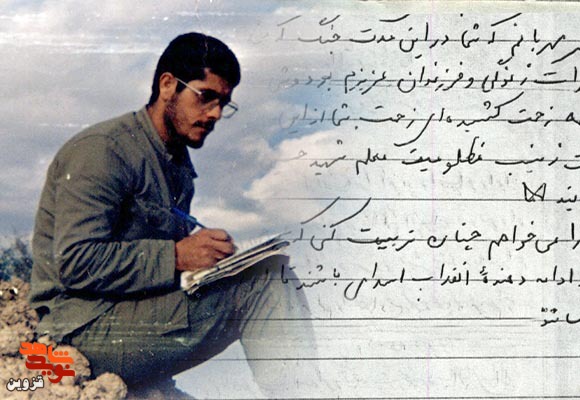 مهربانم که شما در این مدت جنگ
زندگی و فرزندان عزیزم بدوش
زحمت کشیده‌ای زحمت شما از این
زینب مظلومیت معلم شهید
را می‌خواهم چنان تربیت کنی که
ادامه دهندهٔ انقلاب اسلامی باشند تا
نوید شاهد
قزوین